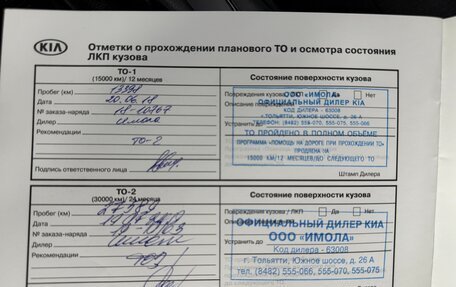 KIA
Отметки о прохождении планового ТО и осмотра состояния
ЛКП кузова
ТО-1
(15000 км)/ 12 месяцев
Состояние поверхности кузова
Пробег (км)
Повреждения кузова / ЛКП Да Нет
Дата 20.06.18
Описание повреждений
№ заказа-наряда
Дилер Имола
Устранить до
Рекомендации
ТО-2
ООО «ИМОЛА»
ОФИЦИАЛЬНЫЙ ДИЛЕР KIA
КОД ДИЛЕРА - 63008
г.ТОЛЬЯТТИ, ЮЖНОЕ ШОССЕ, д. 26 А
ТЕЛЕФОН: (8482) 559-070, 555-075, 555-066
ТО ПРОЙДЕНО В ПОЛНОМ ОБЪЕМЕ
ПРОГРАММА «ПОМОЩЬ НА ДОРОГЕ ПРИ ПРОХОЖДЕНИИ ТО»
ПРОДЛЕНА НА
15000 КМ/12 МЕСЯЦЕВ/ДО СЛЕДУЮЩЕГО ТО
Подпись ответственного лица
Штамп Дилера
ТО-2
(30000 км)/ 24 месяца
Состояние поверхности кузова
Пробег (км)
Повреждения кузова / ЛКП Да Нет
Дата
№ заказа-наряда
Дилер Имола
Устранить до
Рекомендации
ТО3
ОФИЦИАЛЬНЫЙ ДИЛЕР KIA
ООО «ИМОЛА»
Код дилера - 63008
г. Тольятти, Южное шоссе, д. 26 А
тел. (8482) 555-066, 555-070, 555-075